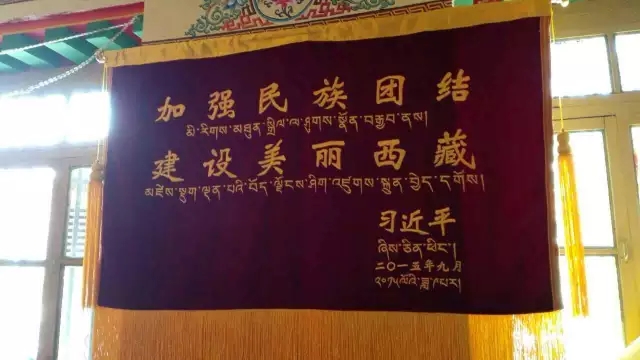 加强民族团结
མི་རིགས་མཐུན་སྒྲིལ་ལ་ཤུགས་སྣོན་བརྒྱབ་ནས།
建设美丽西藏
མཛེས་སྡུག་ལྡན་པའི་བོད་ལྗོངས་ཤིག་འཛུགས་སྐྲུན་བྱེད་དགོས།
习近平
ཞིས་ཅིན་ཕིང་།
二〇一五年九月
༢༠༡༥ལོའི་ཟླ་༩པར།